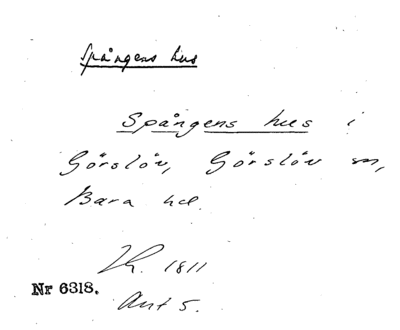 Spångens hus
Spångens hus i
Görslöv, Görslöv sn,
Bara hd.
Lh. 1811
Nr 6318.
Ant 5.